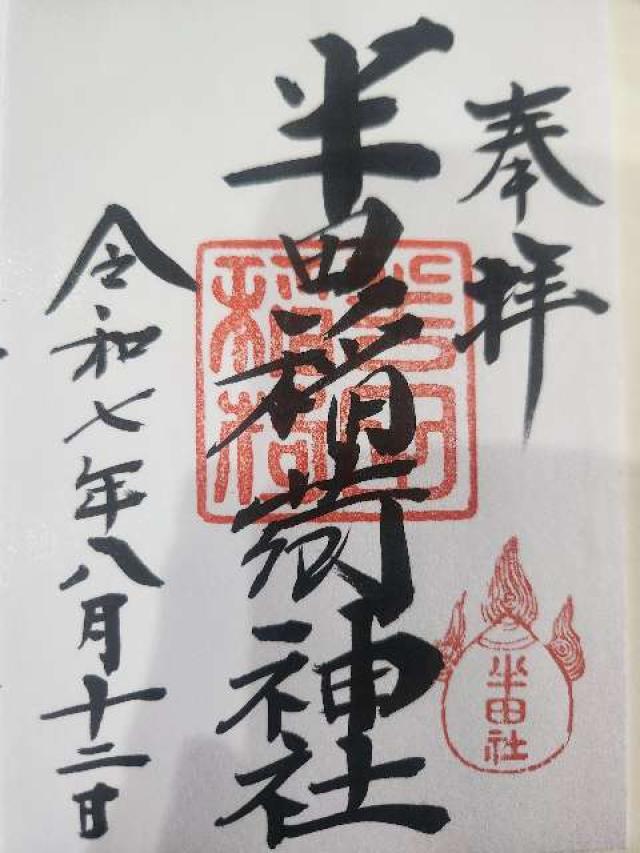 奉拝
半田稲荷神社
令和七年八月十二日
半田社